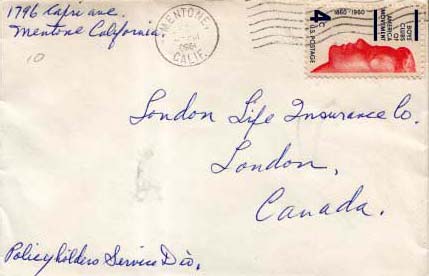 1796 Capri ave.
Mentone California.
10
MENTONE
PM
1961
CALIF.
4¢
U.S. POSTAGE
1860-1960
BOYS
CLUBS
OF
AMERICA
MOVEMENT
London Life Insurance Co.
London,
Canada.
Policyholders Service Div.